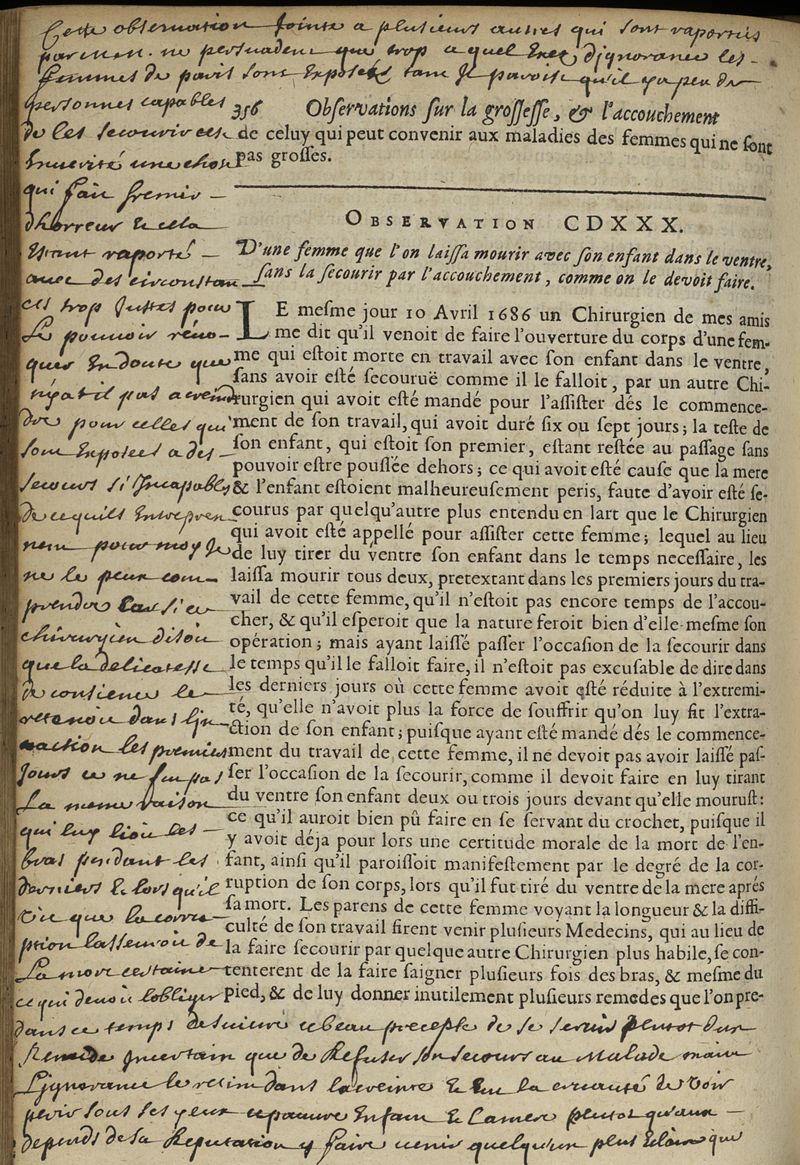 Cette observation jointe a plusieurs autres qui sont raportés
par mon. ne persuadent que trop a quel exez dignorance les
femmes de paris sont exposes tant Il paroist qu'il ya peu de
personnes capables
de les secourir cest
En verité une chose
qui fait fremir
dhorreur Et cela
Estant raporté
avec des circonstan
ces trop justes pour
Le pouvoir revo-
quer En doute que
n'y at il pas a crain
dre pour celles qui
sont Exposees a des
secours si Incapables
de ce quils Entrepren
nent pour moy Je
ne le peux com-
prendre Car si ce
chirurgien disoit
que la delicatesse
de contience le
retenoit dans lin-
action les premiers
Jours ce ne fut pas
La meme raison
qui luy lioit les
bras pendant les
derniers Et lors qu'il
que la corru-
ption lasseuroit de
La mort certaine
ce qui devoit lobliger
356 Obſervations ſur la groſſeſſe, & l'accouchement
de celuy qui peut convenir aux maladies des femmes qui ne ſont
pas groſſes.
OBSERVATION CDXXX.
D'une femme que l'on laiſſa mourir avec ſon enfant dans le ventre,
ſans la ſecourir par l'accouchement, comme on le devoit faire.
LE meſme jour 10 Avril 1686 un Chirurgien de mes amis
me dit qu'il venoit de faire l'ouverture du corps d'une fem-
me qui eſtoit morte en travail avec ſon enfant dans le ventre,
ſans avoir eſté ſecouruë comme il le falloit, par un autre Chi-
rurgien qui avoit eſté mandé pour l'aſſiſter dés le commence-
ment de ſon travail, qui avoit duré ſix ou ſept jours; la teſte de
ſon enfant, qui eſtoit ſon premier, eſtant reſtée au paſſage ſans
pouvoir eſtre pouſſée dehors; ce qui avoit eſté cauſe que la mere
& l'enfant eſtoient malheureuſement peris, faute d'avoir eſté ſe-
courus par quelqu'autre plus entendu en lart que le Chirurgien
qui avoit eſté appellé pour aſſiſter cette femme; lequel au lieu
de luy tirer du ventre ſon enfant dans le temps neceſſaire, les
laiſſa mourir tous deux, pretextant dans les premiers jours du tra-
vail de cette femme, qu'il n'eſtoit pas encore temps de l'accou-
cher, & qu'il eſperoit que la nature feroit bien d'elle-meſme ſon
opération; mais ayant laiſſé paſſer l'occaſion de la ſecourir dans
le temps qu'il le falloit faire, il n'eſtoit pas excuſable de dire dans
les derniers jours où cette femme avoit eſté réduite à l'extremi-
té, qu'elle n'avoit plus la force de ſouffrir qu'on luy fit l'extra-
ction de ſon enfant; puiſque ayant eſté mandé dés le commence-
ment du travail de cette femme, il ne devoit pas avoir laiſſé paſ-
ſer l'occaſion de la ſecourir, comme il devoit faire en luy tirant
du ventre ſon enfant deux ou trois jours devant qu'elle mouruſt:
ce qu'il auroit bien pû faire en ſe ſervant du crochet, puiſque il
y avoit déja pour lors une certitude morale de la mort de l'en-
fant, ainſi qu'il paroiſſoit manifeſtement par le degré de la cor-
ruption de ſon corps, lors qu'il fut tiré du ventre de la mere aprés
ſa mort. Les parens de cette femme voyant la longueur & la diffi-
culté de ſon travail firent venir pluſieurs Medecins, qui au lieu de
la faire ſecourir par quelque autre Chirurgien plus habile, ſe con-
tenterent de la faire ſaigner pluſieurs fois des bras, & meſme du
pied, & de luy donner inutilement pluſieurs remedes que l'on pre-
dans ce temps de suivre ce beau precepte de se servir plutot dun
Remede Incertain que de Refuser son secours au Malade mais
Lignorance le retint dans la creinte Et la cruauté de voir
perir sous ses yeux ce pauvre Enfant Et La mere plutot qu'aux
depends de sa Reputation y faire venir quelqu'un plus que